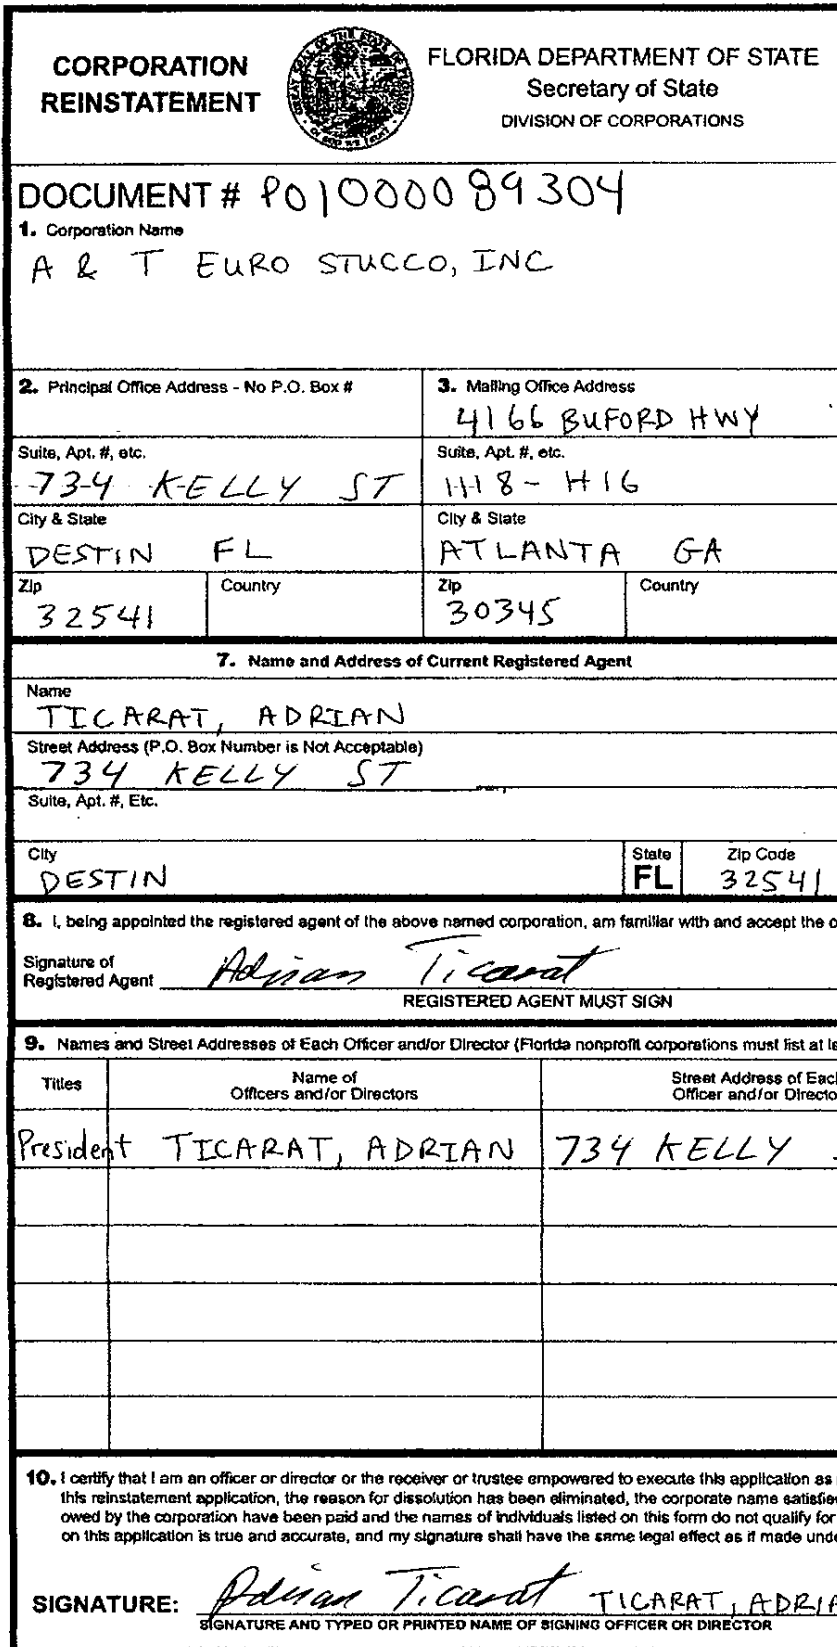 CORPORATION
REINSTATEMENT
FLORIDA DEPARTMENT OF STATE
Secretary of State
DIVISION OF CORPORATIONS
DOCUMENT # P01000089304
1. Corporation Name
A & T EURO STUCCO, INC
2. Principal Office Address - No P.O. Box #
3. Mailing Office Address
4166 BUFORD HWY
Suite, Apt. #, etc.
Suite, Apt. #, etc.
734 KELLY ST
1118- H16
City & State
City & State
DESTIN FL
ATLANTA GA
Zip
Country
Zip
Country
32541
30345
7. Name and Address of Current Registered Agent
Name
TICARAT, ADRIAN
Street Address (P.O. Box Number is Not Acceptable)
734 KELLY ST
Suite, Apt. #, Etc.
City
State
Zip Code
DESTIN
FL
32541
8. I, being appointed the registered agent of the above named corporation, am familiar with and accept the o
Signature of
Registered Agent
Adrian Ticarat
REGISTERED AGENT MUST SIGN
9. Names and Street Addresses of Each Officer and/or Director (Florida nonprofit corporations must list at le
Titles
Name of
Officers and/or Directors
Street Address of Eac
Officer and/or Directo
President TICARAT, ADRIAN 734 KELLY
10. I certify that I am an officer or director or the receiver or trustee empowered to execute this application as
this reinstatement application, the reason for dissolution has been eliminated, the corporate name satisfie
owed by the corporation have been paid and the names of individuals listed on this form do not qualify for
on this application is true and accurate, and my signature shall have the same legal effect as if made unde
SIGNATURE: Adrian Ticarat TICARAT, ADRIA
SIGNATURE AND TYPED OR PRINTED NAME OF SIGNING OFFICER OR DIRECTOR